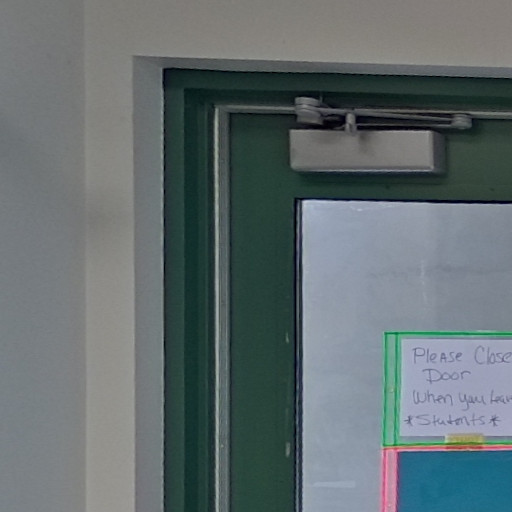 Please Close
Door
When you Leav
*Students*